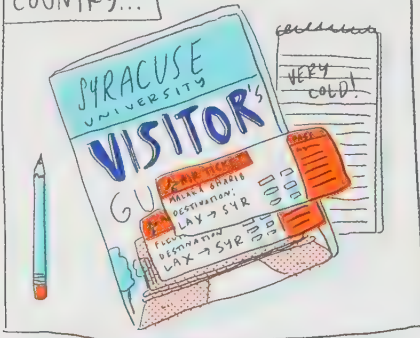 COUNTRY...
SYRACUSE
UNIVERSITY
VISITOR'S
GU
VERY
COLD!
AIR TICKET
PASS
MALAKA GHARIB
DESTINATION:
LAX → SYR
DESTINATION
LAX → SYR